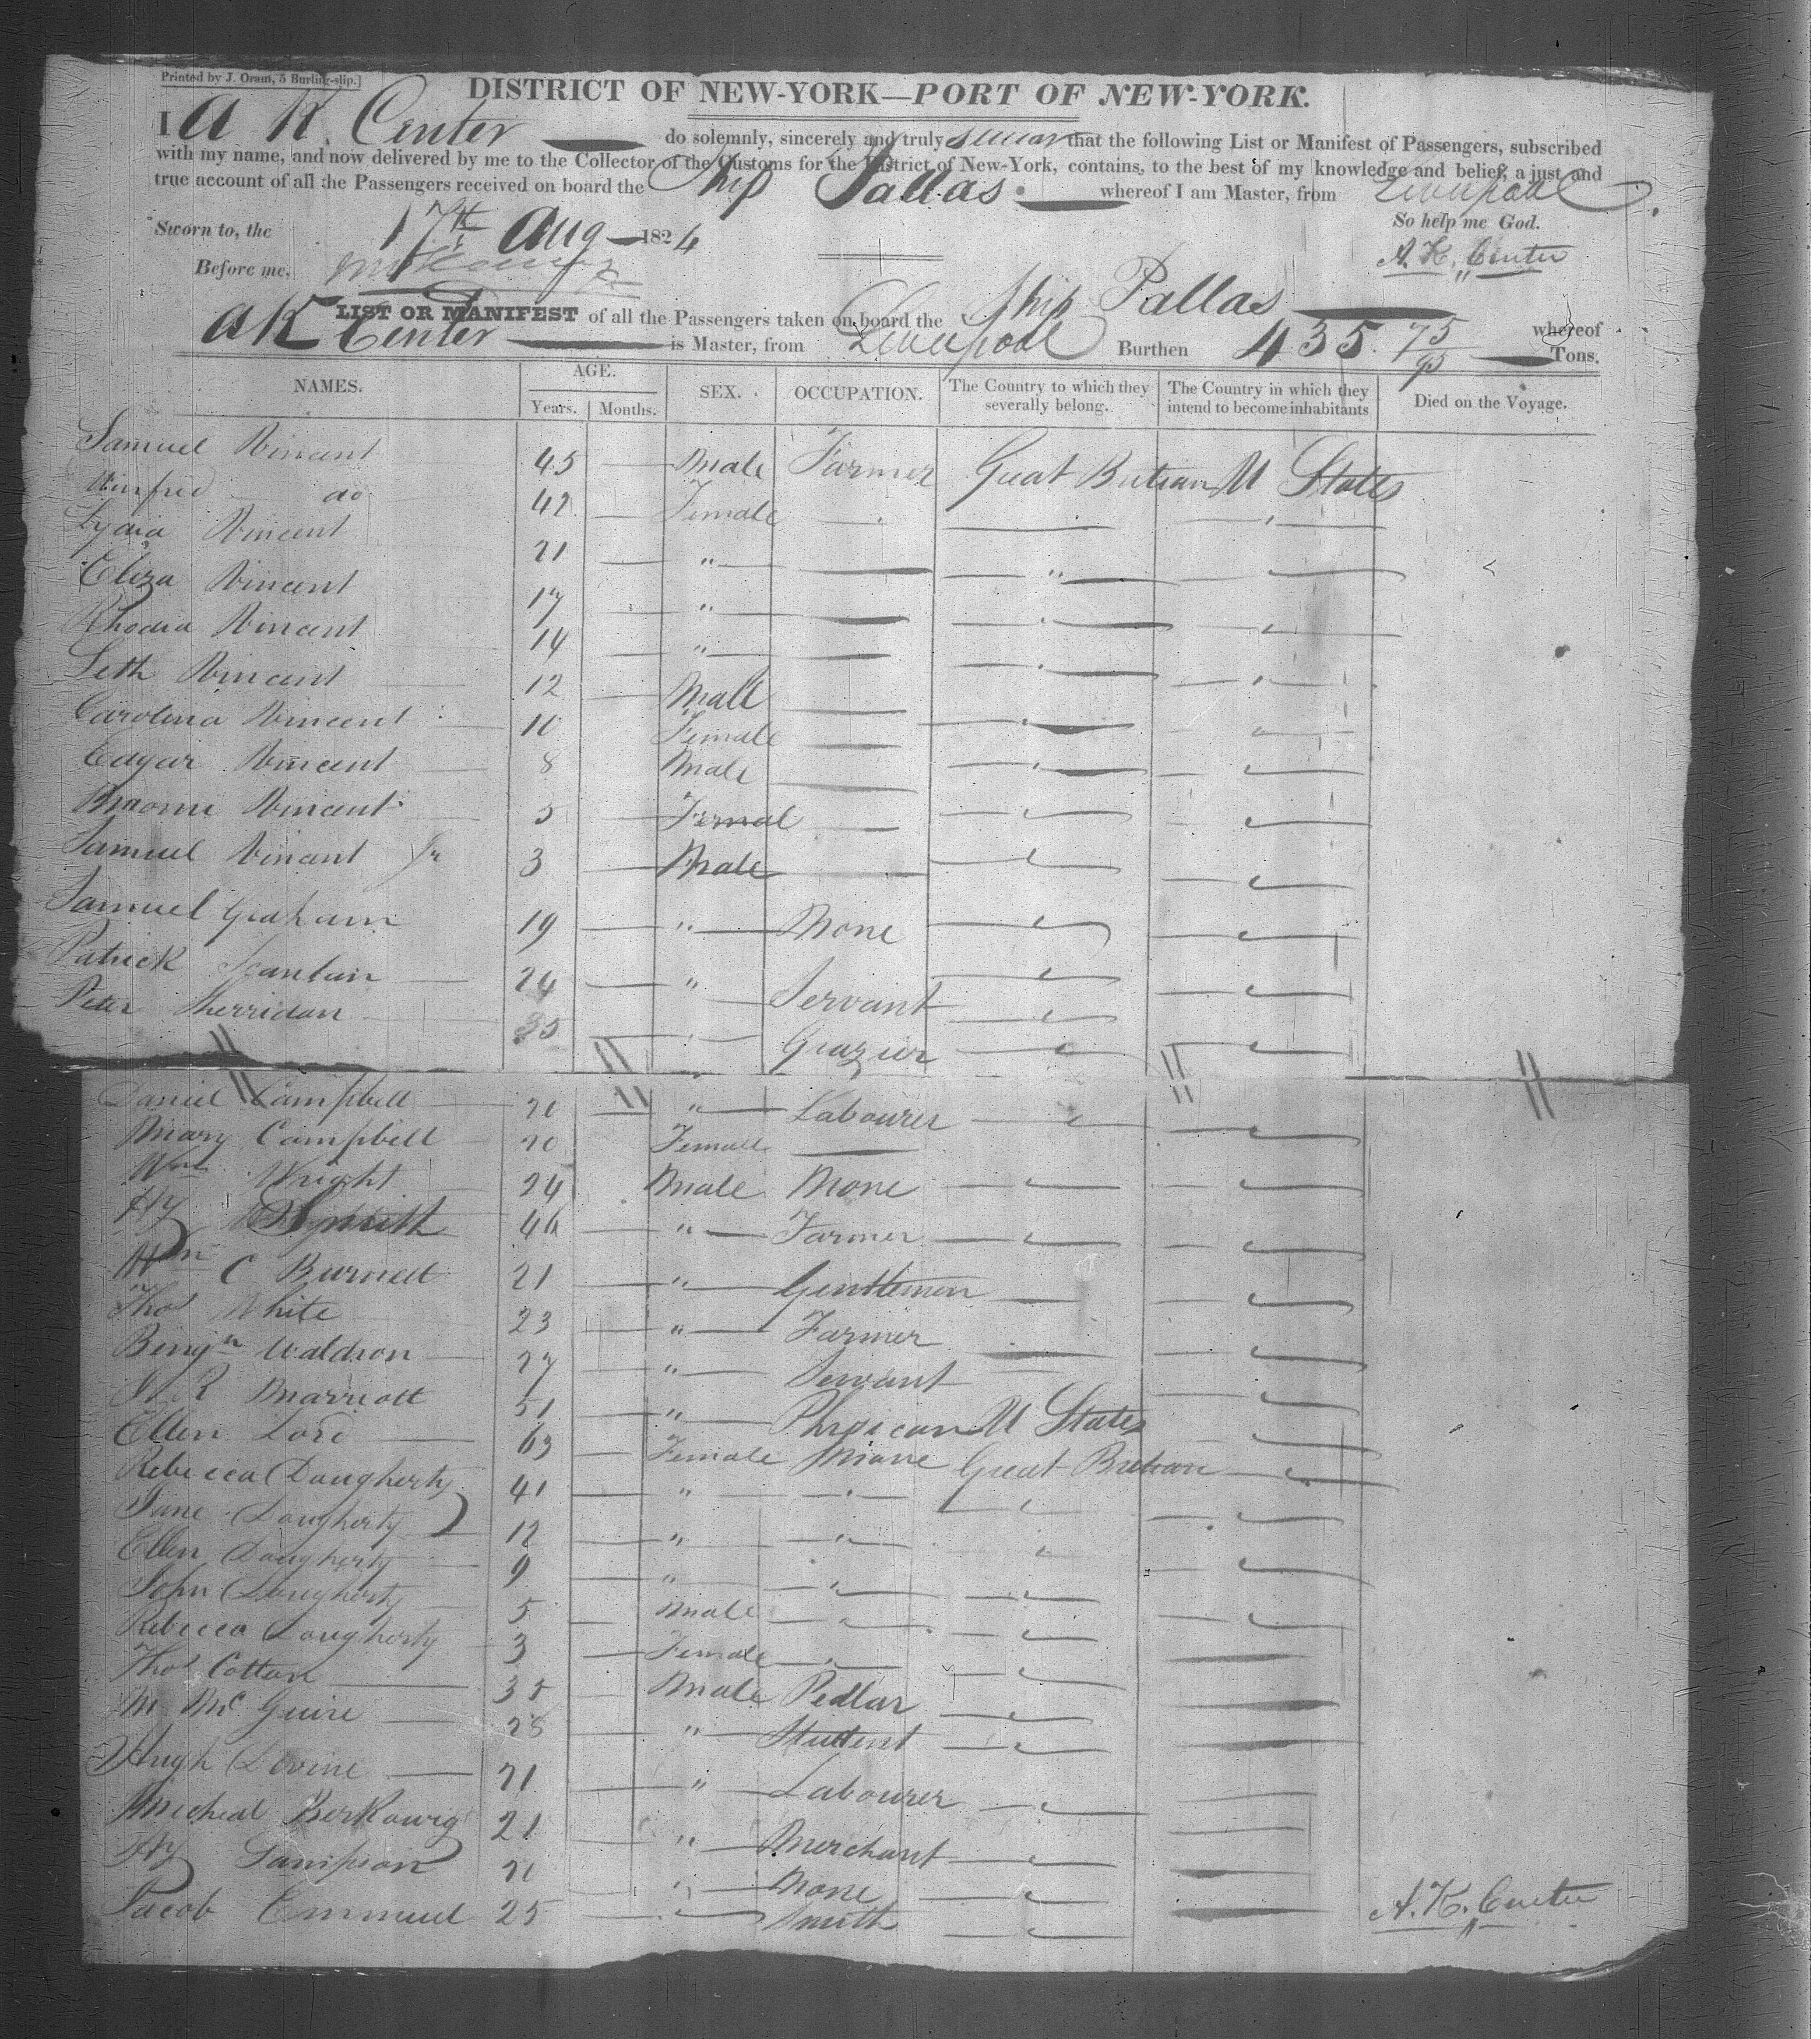 Printed by J. Oram, 5 Burling-slip.]
DISTRICT OF NEW-YORK—PORT OF NEW-YORK.
I A K. Center do solemnly, sincerely and truly swear that the following List or Manifest of Passengers, subscribed
with my name, and now delivered by me to the Collector of the Customs for the District of New-York, contains, to the best of my knowledge and belief, a just and
true account of all the Passengers received on board the Ship Pallas whereof I am Master, from Liverpool
Sworn to, the 17th Aug 1824 So help me God.
Before me, A. K. Center
LIST OR MANIFEST of all the Passengers taken on board the Ship Pallas whereof
A K Center is Master, from Liverpool Burthen 435 75/95 Tons.
NAMES. AGE. Years. Months. SEX. OCCUPATION. The Country to which they severally belong. The Country in which they intend to become inhabitants Died on the Voyage.
Samuel Vincent 45 Male Farmer Great Britain U States
Winfred do 42 Female
Lydia Vincent 21 "
Eliza Vincent 17 "
Rhodia Vincent 14 "
Seth Vincent 12 Male
Carolina Vincent 10 Female
Edgar Vincent 8 Male
Naomi Vincent 5 Femal
Samuel Vincent Jr 3 Male
Samuel Graham 19 " None
Patrick Scanlain 24 " Servant
Peter Sherridan 35 Grazier
Daniel Campbell 20 " Labourer
Mary Campbell 20 Female
Wm Wright 24 Male None
Hy Smith 46 " Farmer
Wm C Burnett 21 " Gentlemen
Thos White 23 " Farmer
Benjn Waldron 27 " Servant
Marriott 51 " Phisican U States
Ellen Lord 63 Female None Great Britain
Rebecca Dougherty 41 "
Jane Dougherty 12 "
Ellen Dougherty 9 "
John Dougherty 5 Male
Rebecca Dougherty 3 Female
Thos Cotton 35 Male Pedlar
M McGuire 28 " Student
Hugh Devine 21 " Labourer
Micheal 21 " Merchant
Hy Sampson 20 " None
Jacob Emmuel 25 " Smith
A. K. Center